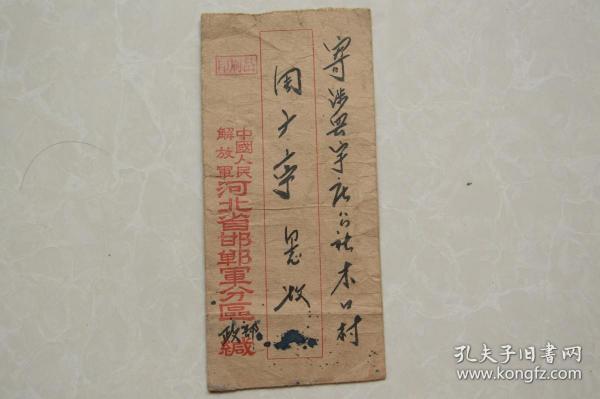 寄涉县宇庄公社木口村
周大亭 收
印刷品
中國人民
解放軍
河北省邯郸軍分區
政 部
緘
孔夫子旧书网
www.kongfz.com